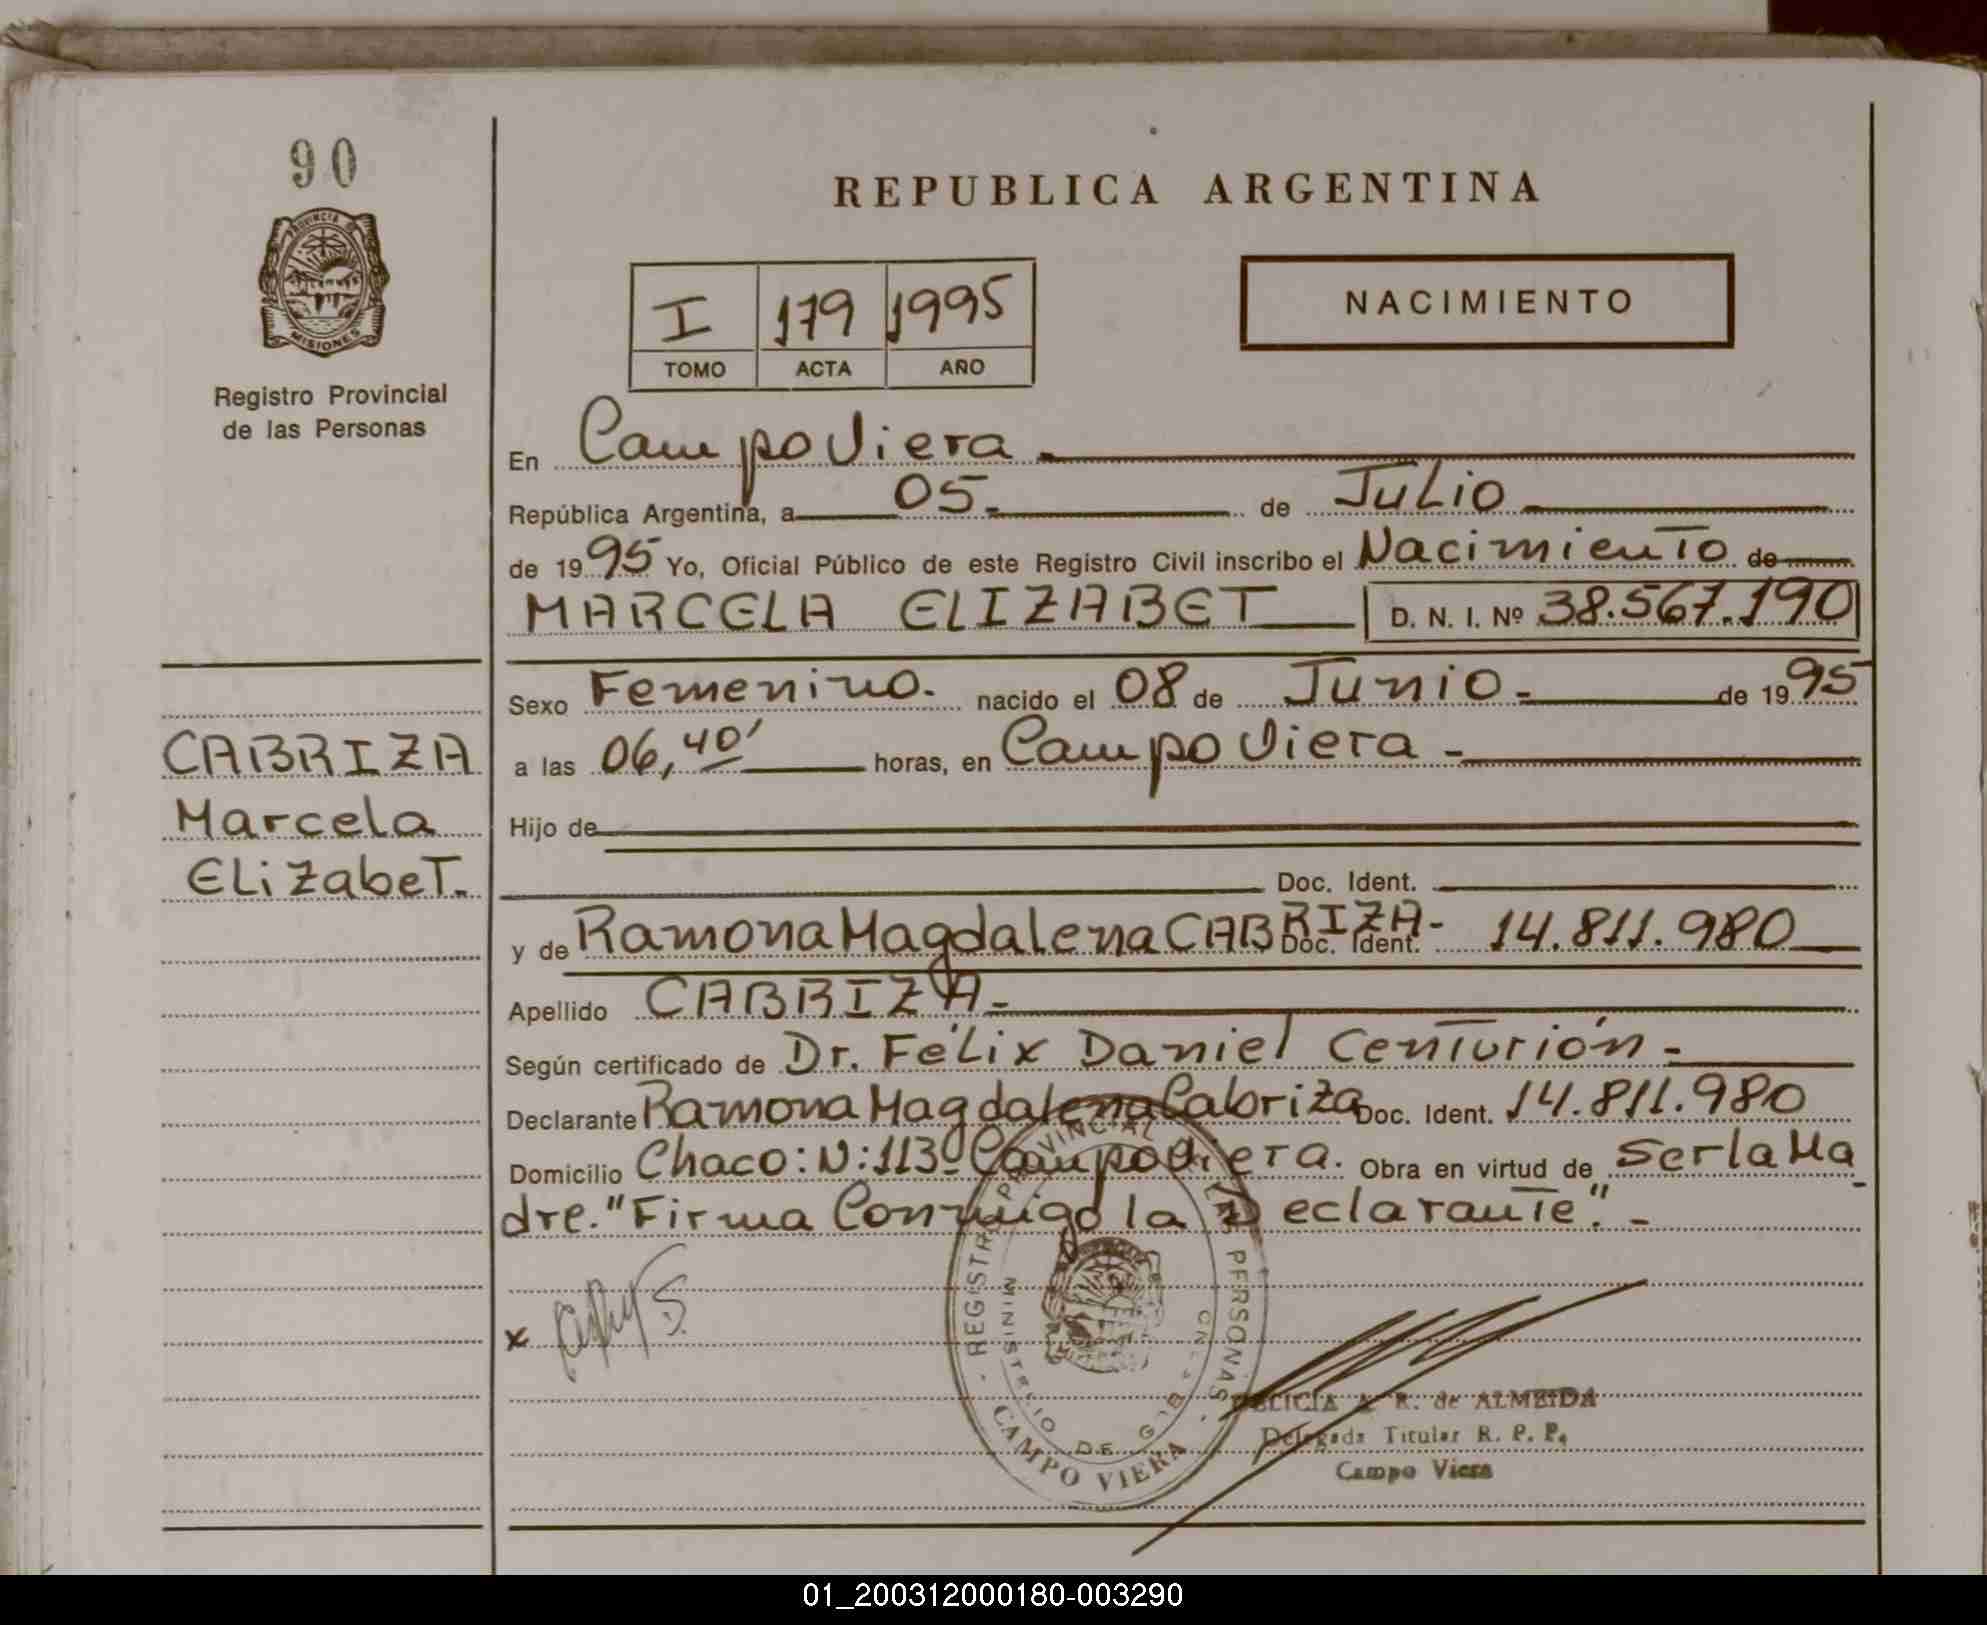 90
PROVINCIA
MISIONES
Registro Provincial
de las Personas
REPUBLICA ARGENTINA
I 179 1995
TOMO ACTA AÑO
NACIMIENTO
En Campo Viera
República Argentina, a 05 de Julio
de 1995 Yo, Oficial Público de este Registro Civil inscribo el Nacimiento de
MARCELA ELIZABET D. N. I. Nº 38.567.190
Sexo Femenino. nacido el 08 de Junio de 1995
a las 06,40' horas, en Campo Viera
Hijo de
Doc. Ident.
y de Ramona Magdalena CABRIZA Doc. Ident. 14.811.980
Apellido CABRIZA
Según certificado de Dr. Félix Daniel Centurión
Declarante Ramona Magdalena Cabriza Doc. Ident. 14.811.980
Domicilio Chaco: N: 113 Campo Viera. Obra en virtud de Ser la Ma
dre. "Firma Conmigo la Declarante".
CABRIZA
Marcela
Elizabet.
x
REGISTRO PROVINCIAL PERSONAS
MINISTERIO DE GOB
CAMPO VIERA
R. de ALMEIDA
Delegada Titular R. P. P.
Campo Viera
01_200312000180-003290